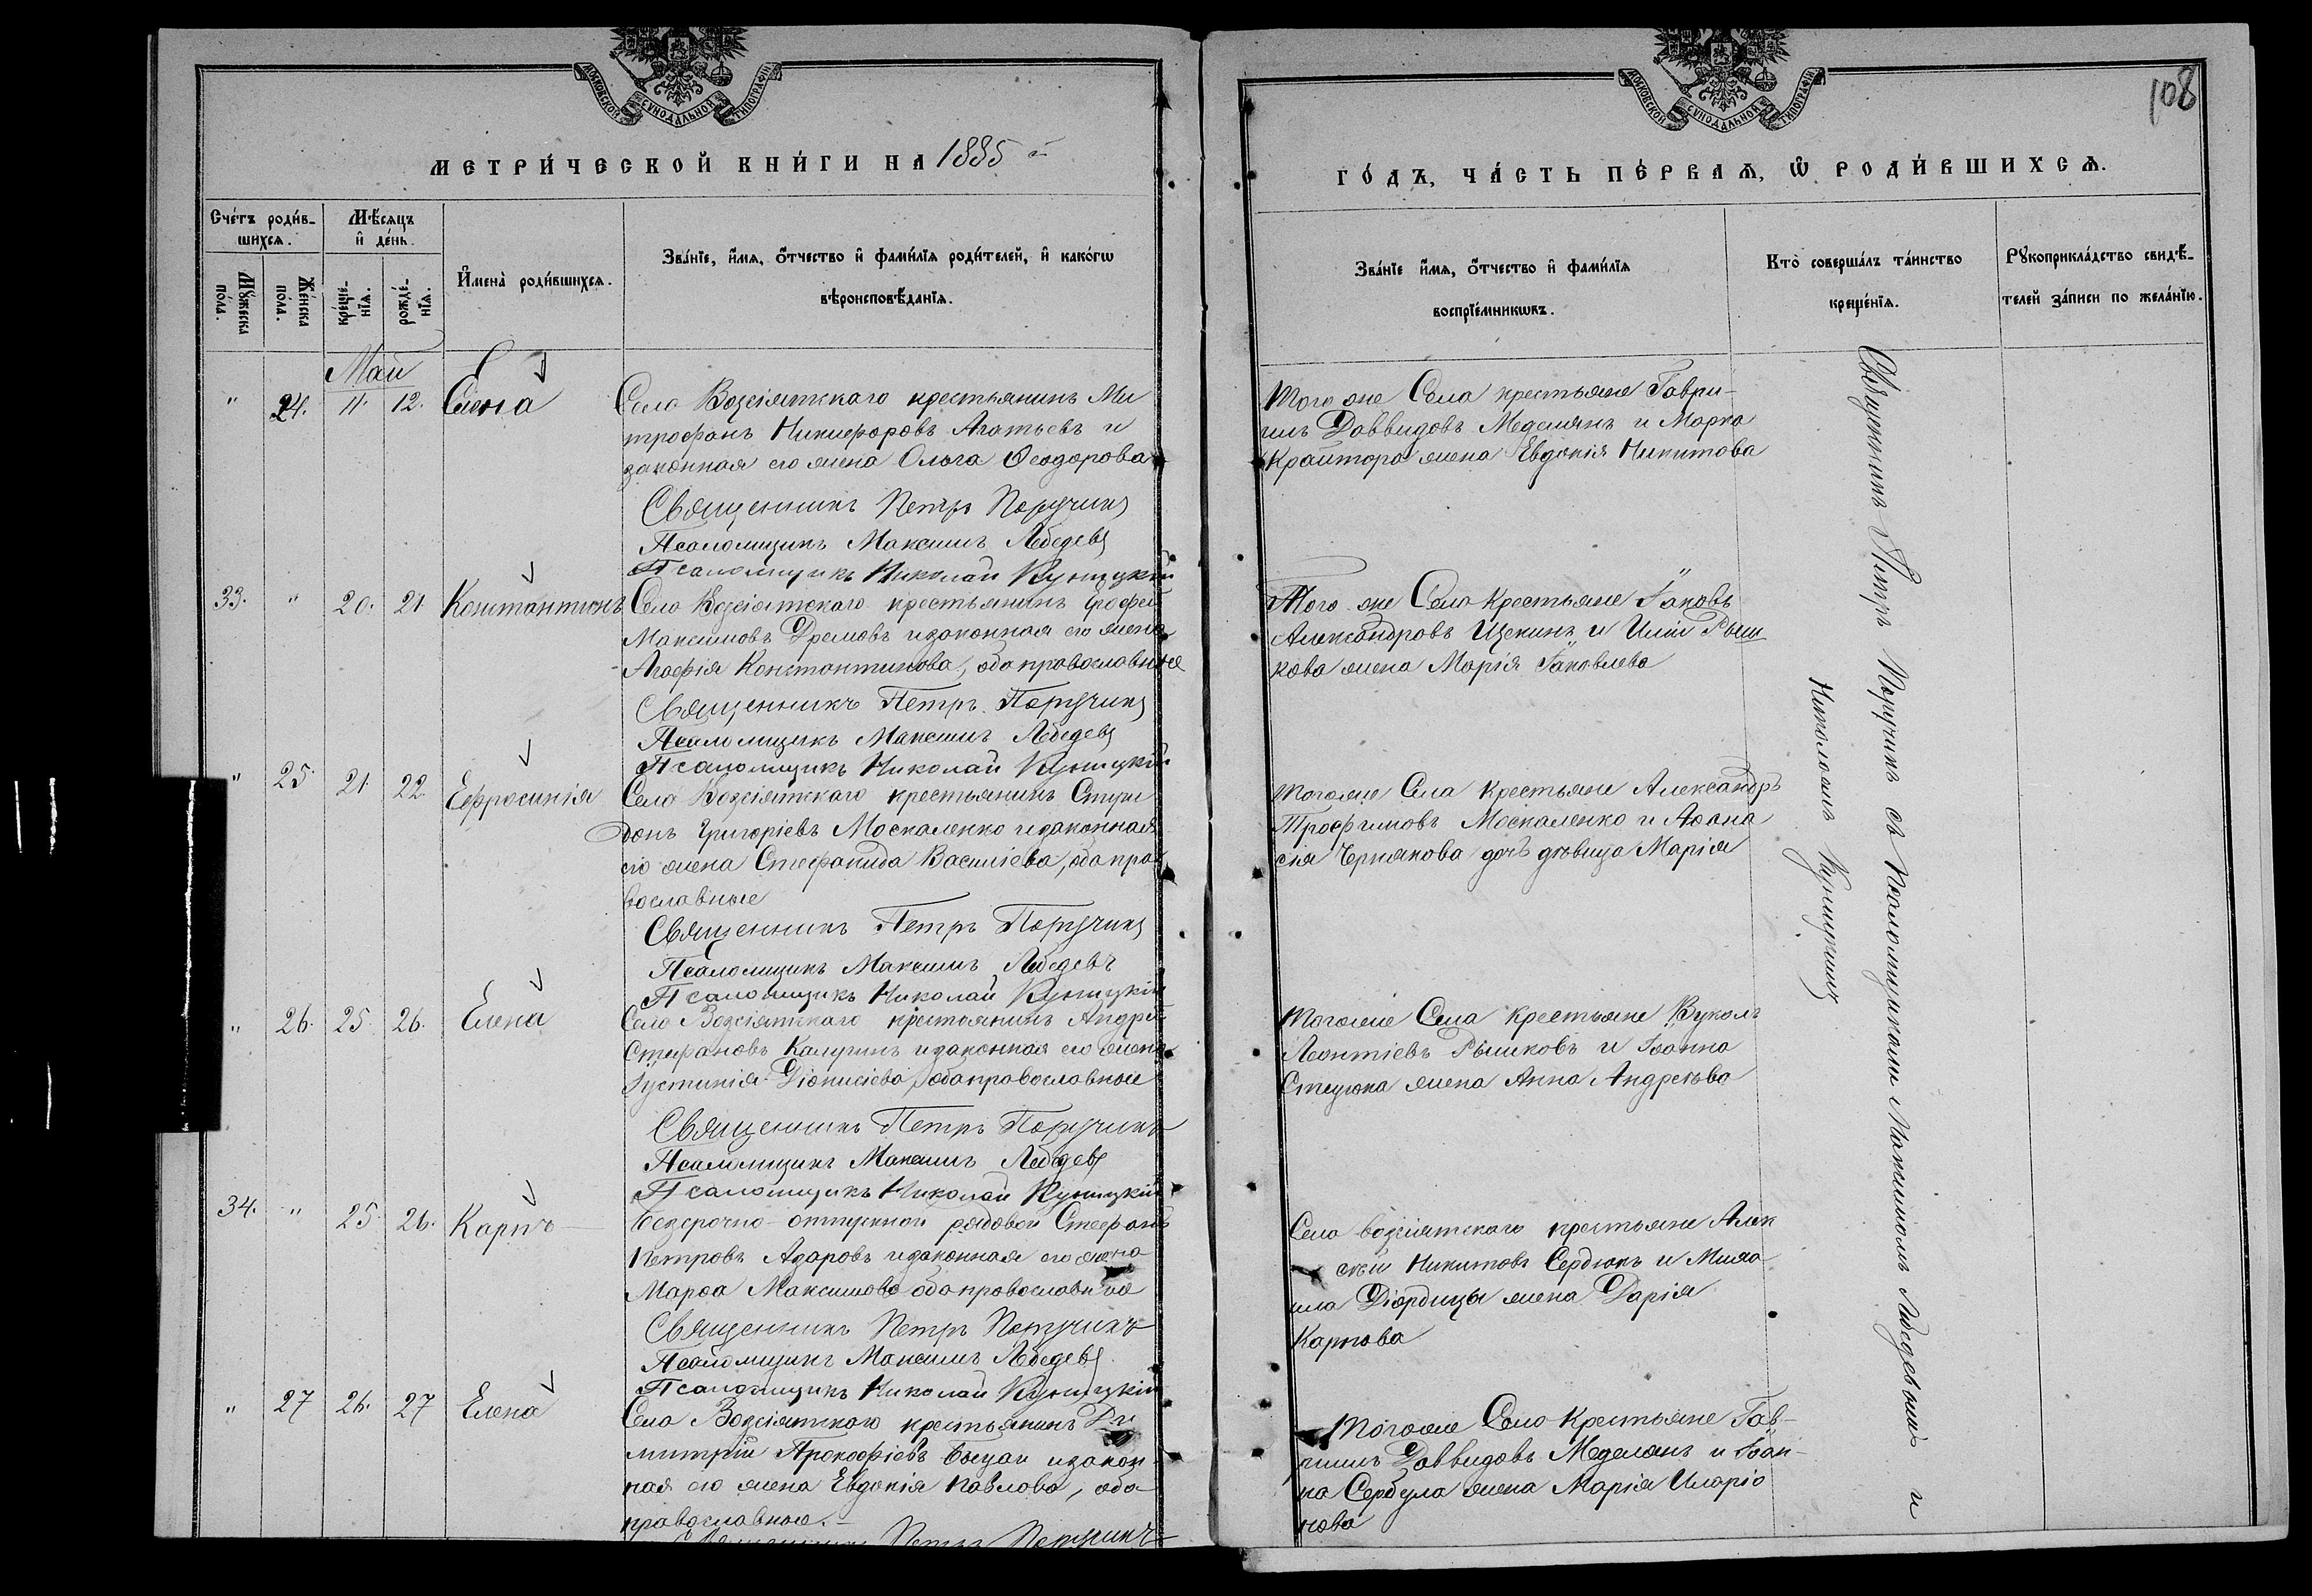 МОСКОВСКОЙ СѴНОДАЛЬНОЙ ТИПОГРАФІИ
МЕТРИ́ЧЕСКОЙ КНИ́ГИ НА 1885 й
Сче́тъ роди́в-
шихсѧ.
Мѣ́сѧцъ
и҆ де́нь.
Мꙋ́жеска
по́ла.
Же́нска
по́ла.
рожде́-
нїѧ.
креще́-
нїѧ.
И҆мена̀ роди́вшихсѧ.
Зва́нїе, и҆́мѧ, ѻ҆́тчество и҆ фами́лїѧ роди́телей, и҆ како́гѡ
вѣроисповѣ́данїѧ.
Май
" 24. 11. 12. Елена
Села Возсіятскаго крестьянинъ Ми
трофанъ Никифоровъ Агатьевъ и
законная его жена Ольга Ѳеодорова
Священникъ Петръ Поручикъ
Псаломщикъ Максимъ Лебедевъ
Псаломщикъ Николай Куницкій
33. " 20. 21 Константинъ
Села Возсіятскаго крестьянинъ Ерофей
Максимовъ Дремовъ и законная его жена
Агафія Константинова, оба православные
Священникъ Петръ Поручикъ
Псаломщикъ Максимъ Лебедевъ
Псаломщикъ Николай Куницкій
" 25 21. 22 Ефросинія
Села Возсіятскаго крестьянинъ Спири
донъ Григоріевъ Москаленко и законная
его жена Стефанида Василіева, оба пра
вославные
Священникъ Петръ Поручикъ
Псаломщикъ Максимъ Лебедевъ
Псаломщикъ Николай Куницкій
" 26. 25 26. Елена
Села Возсіятскаго крестьянинъ Андрей
Стефановъ Калугинъ и законная его жена
Іустинія Діонисіева, оба православные
Священникъ Петръ Поручикъ
Псаломщикъ Максимъ Лебедевъ
Псаломщикъ Николай Куницкій
34. " 25 26. Карпъ
Безсрочно-отпускной рядовой Стефанъ
Петровъ Азаровъ и законная его жена
Марѳа Максимова оба православные
Священникъ Петръ Поручикъ
Псаломщикъ Максимъ Лебедевъ
Псаломщикъ Николай Куницкій
" 27 26. 27 Елена
Села Возсіятскаго крестьянинъ Ди
митрій Прокофіевъ и закон
ная его жена Евдокія Павлова, оба
православные.
Священникъ Петръ Поручикъ
108
МОСКОВСКОЙ СѴНОДАЛЬНОЙ ТИПОГРАФІИ
ГО́ДЪ, ЧА́СТЬ ПЕ́РВАѦ, Ѡ҆ РОДИ́ВШИХСѦ.
Зва́нїе и҆́мѧ, ѻ҆́тчество и҆ фами́лїѧ
воспрїе́мникѡвъ.
Кто̀ соверша́лъ та́инство
креще́нїѧ.
Рꙋкоприкла́дство свидѣ́-
телей за́писи по жела́нїю.
Того же Села крестьяне Гаври-
илъ Даввидовъ Меделянъ и Марка
Крайтора жена Евдокія Никитова
Того же Села крестьяне Іаковъ
Александровъ Щекинъ и Иліи Рыш
кова жена Марія Іаковлева
Тогоже Села крестьяне Александръ
Трофимовъ Москаленко и Аѳана
сія Чернякова дочь дѣвица Марія
Тогоже Села крестьяне Вуколъ
Леонтіевъ Рышковъ и Іоанна
Стецюка жена Анна Андреева
Села возсіятскаго крестьяне Алек
сѣй Никитовъ Сердюкъ и Миха
ила Діордицы жена Дарія
Карпова
Тогоже Села крестьяне Гав-
риилъ Даввидовъ Меделянъ и Іоан-
на Сербула жена Марія Иларіо
нова
Священникъ Петръ Поручикъ съ Псаломщиками Максимомъ Лебедевымъ и
Николаемъ Куницкимъ